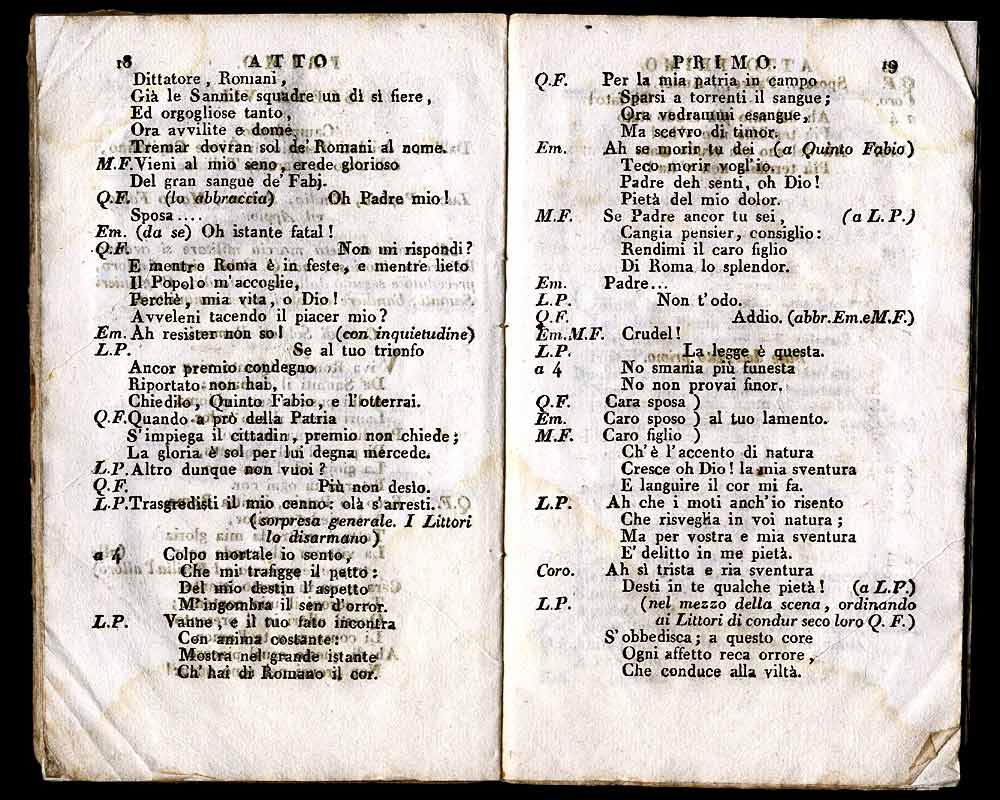 18 ATTO
Dittatore, Romani,
Già le Sannite squadre un dì sì fiere,
Ed orgogliose tanto,
Ora avvilite e dome,
Tremar dovran sol de' Romani al nome.
M.F. Vieni al mio seno, erede glorioso
Del gran sangue de' Fabj.
Q.F. (lo abbraccia) Oh Padre mio!
Sposa....
Em. (da se) Oh istante fatal!
Q.F. Non mi rispondi?
E mentre Roma è in feste, e mentre lieto
Il Popolo m'accoglie,
Perchè, mia vita, o Dio!
Avveleni tacendo il piacer mio?
Em. Ah resister non so! (con inquietudine)
L.P. Se al tuo trionfo
Ancor premio condegno
Riportato non hai,
Chiedilo, Quinto Fabio, e l'otterrai.
Q.F. Quando a prò della Patria
S'impiega il cittadin, premio non chiede;
La gloria è sol per lui degna mercede.
L.P. Altro dunque non vuoi?
Q.F. Più non desìo.
L.P. Trasgredisti il mio cenno: olà s'arresti.
(sorpresa generale. I Littori
lo disarmano)
a 4 Colpo mortale io sento,
Che mi trafigge il petto:
Del mio destin l'aspetto
M'ingombra il sen d'orror.
L.P. Vanne, e il tuo fato incontra
Con anima costante:
Mostra nel grande istante
Ch'hai di Romano il cor.
PRIMO. 19
Q.F. Per la mia patria in campo
Sparsi a torrenti il sangue;
Ora vedrammi esangue,
Ma scevro di timor.
Em. Ah se morir tu dei (a Quinto Fabio)
Teco morir vogl'io.
Padre deh senti, oh Dio!
Pietà del mio dolor.
M.F. Se Padre ancor tu sei, (a L.P.)
Cangia pensier, consiglio:
Rendimi il caro figlio
Di Roma lo splendor.
Em. Padre...
L.P. Non t'odo.
Q.F. Addio. (abbr.Em.eM.F.)
Em.M.F. Crudel!
L.P. La legge è questa.
a 4 No smania più funesta
No non provai finor.
Q.F. Cara sposa )
Em. Caro sposo ) al tuo lamento.
M.F. Caro figlio )
Ch'è l'accento di natura
Cresce oh Dio! la mia sventura
E languire il cor mi fa.
L.P. Ah che i moti anch'io risento
Che risveglia in voi natura;
Ma per vostra e mia sventura
E' delitto in me pietà.
Coro. Ah sì trista e ria sventura
Desti in te qualche pietà! (a L.P.)
L.P. (nel mezzo della scena, ordinando
ai Littori di condur seco loro Q. F.)
S'obbedisca; a questo core
Ogni affetto reca orrore,
Che conduce alla viltà.